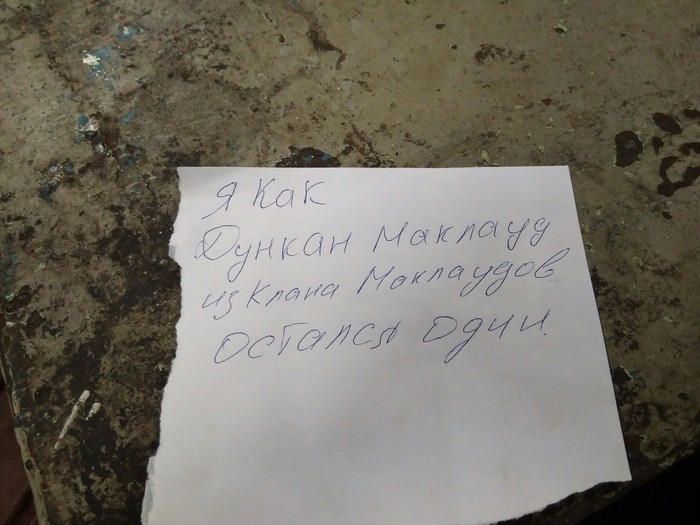 Я как
Дункан Маклауд
из клана Маклаудов
остался один.